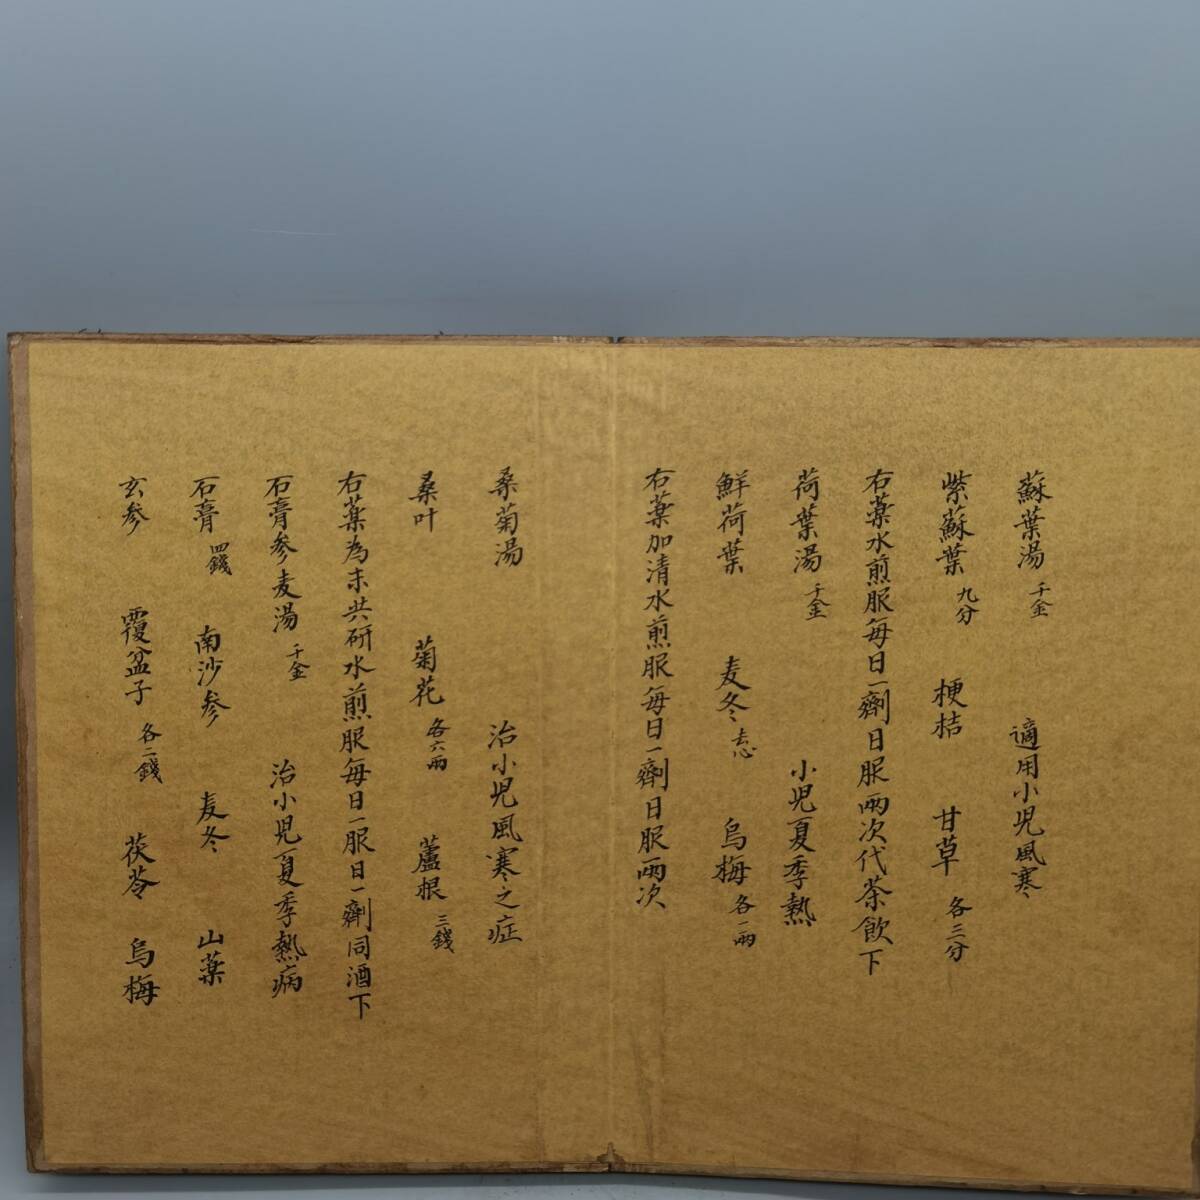 蘇葉湯 千金 適用小児風寒
紫蘇葉 九分 梗桔 甘草 各三分
右薬水煎服每日一劑日服兩次代茶飲下
荷葉湯 千金 小児夏季熱
鮮荷葉 麦冬 去心 烏梅 各一兩
右薬加清水煎服每日一劑日服兩次
桑菊湯 治小児風寒之症
桑叶 菊花 各六兩 蘆根 三錢
右薬為末共研水煎服每日一服日一劑同酒下
石膏参麦湯 千金 治小児夏季熱病
石膏 四錢 南沙参 麦冬 山薬
玄参 覆盆子 各二錢 茯苓 烏梅